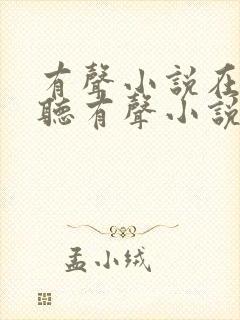 有聲小說在
聽有聲小說
孟小绒